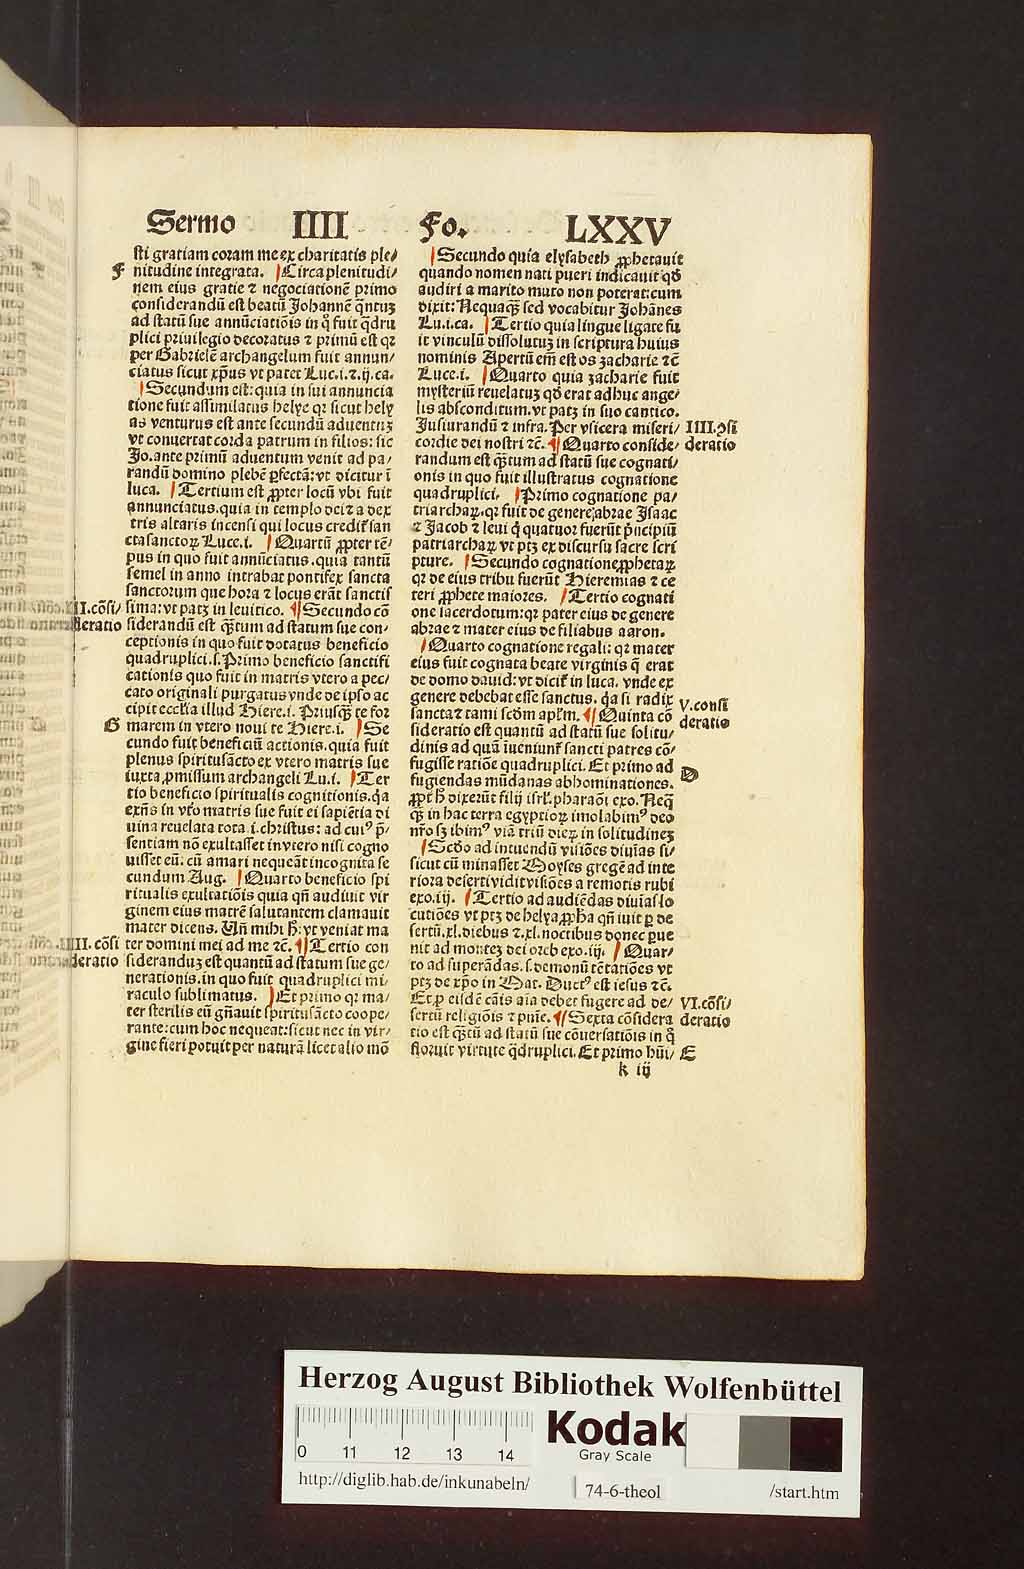 Sermo IIII Fo. LXXV
sti gratiam coram me ex charitatis ple/
F nitudine integrata. Circa plenitudi/
nem eius gratie ⁊ negociationē primo
considerandū est beatū Johannē q̄ntuꝫ
ad statū sue annūciatiōis in q̊ fuit q̈dru
plici priuilegio decoratus ⁊ primū est qꝛ
per Gabrielē archangelum fuit annun/
ciatus sicut xp̄us vt patet Luc.i.⁊.ij.ca.
Secundum est: quia in sui annuncia
tione fuit assimilatus helye qꝛ sicut hely
as venturus est ante secundū aduentuꝫ
vt conuertat corda patrum in filios: sic
Jo. ante primū aduentum venit ad pa/
randū domino plebē ꝑfectā: vt dicitur ī
luca. Tertium est ꝓpter locū vbi fuit
annunciatus. quia in templo dei ⁊ a dex
tris altaris incensi qui locus credit̉ san
cta sanctoꝝ Luce.i. Quartū ꝓpter tē/
pus in quo fuit annūciatus. quia tantū
semel in anno intrabat pontifex sancta
sanctorum que hora ⁊ locus erāt sanctis
II. cōsi/ sima: vt patꝫ in leuitico. ¶ Secundo cō
deratio siderandū est q̄ꝫtum ad statum sue con/
ceptionis in quo fuit dotatus beneficio
quadruplici. s. Primo beneficio sanctifi
cationis quo fuit in matris vtero a pec/
cato originali purgatus vnde de ipso ac
cipit eccl̄ia illud Hiere.i. Priusq̄ꝫ te for
G marem in vtero noui te Hiere.i. Se
cundo fuit beneficiū actionis. quia fuit
plenus spiritusācto ex vtero matris sue
iuxta ꝓmissum archangeli Lu.i. Ter
tio beneficio spiritualis cognitionis. q̇a
exn̄s in vt̄o matris sue fuit ei sapiētia di
uina reuelata tota .i. christus: ad cuiꝰ p̄/
sentiam nō exultasset in vtero nisi cogno
uisset eū: cū amari nequeāt incognita se
cundum Aug. Quarto beneficio spi
ritualis exultatiōis quia qn̄ audiuit vir
ginem eius matrē salutantem clamauit
mater dicens. Vn̄ mihi h̄: vt veniat ma
III. cōsi ter domini mei ad me ⁊c̄. ¶ Tertio con
deratio sideranduꝫ est quantū ad statum sue ge/
nerationis. in quo fuit quadruplici mi/
raculo sublimatus. Et primo qꝛ ma/
ter sterilis eū gn̄auit spiritusācto coope/
rante: cum hoc nequeat: sicut nec in vir/
gine fieri potuit per naturā licet alio mō
Secundo quia elysabeth ꝓphetauit
quando nomen nati pueri indicauit qď
audiri a marito muto non poterat: cum
dixit: Nequaq̄ꝫ sed vocabitur Johānes
Lu.i.ca. Tertio quia lingue ligate fu
it vinculū dissolutuꝫ in scriptura huius
nominis Apertū em̄ est os zacharie ⁊c̄
Luce.i. Quarto quia zacharie fuit
mysteriū reuelatuꝫ qď erat adhuc ange/
lis absconditum. vt patꝫ in suo cantico.
Jusiurandū ⁊ infra. Per viscera miseri/ IIII. ꝯsi
cordie dei nostri ⁊c̄. ¶ Quarto conside/ deratio
randum est q̄ꝫtum ad statū sue cognati/
onis in quo fuit illustratus cognatione
quadruplici. Primo cognatione pa/
triarchaꝝ. qꝛ fuit de genere abrae Isaac
⁊ Jacob ⁊ leui q̇ quatuor fuerūt p̄ncipiū
patriarchaꝝ vt ptꝫ ex discursu sacre scri
pture. Secundo cognatione ꝓphetaꝝ
qꝛ de eius tribu fuerūt Hieremias ⁊ ce
teri ꝓphete maiores. Tertio cognati
one sacerdotum: qꝛ pater eius de genere
abrae ⁊ mater eius de filiabus aaron.
Quarto cognatione regali: qꝛ mater
eius fuit cognata beate virginis q̄ erat
de domo dauid: vt dicit̉ in luca. vnde ex
genere debebat esse sanctus. q̇a si radix V. consi
sancta ⁊ rami scďm apl̄m. ¶ Quinta cō deratio
sideratio est quantū ad statū sue solitu/
dinis ad quā īueniunt̉ sancti patres cō/
fugisse ratiōe quadruplici. Et primo ad D
fugiendas mūdanas abhominationes.
ꝓpt̉ h̄ dixerūt filij isrl̓. pharaōi exo. Neq̓
q̄ꝫ in hac terra egyptioꝝ imolabimꝰ deo
nr̄o sꝫ ibimꝰ viā triū dieꝝ in solitudineꝫ
Scďo ad intuendū visiōes diuīas si/
sicut cū minasset Moyses gregē ad inte
riora deserti vidit visiōes a remotis rubi
exo.iij. Tertio ad audiēdas diuīas lo
cutiōes vt ptꝫ de helya ꝓp̄ha qn̄ iuit ꝑ de
sertū .xl. diebus ⁊ .xl. noctibus donec ꝑue
nit ad monteꝫ dei oreb exo.iij. Quar/
to ad superādas .s. demonū tētatiōes vt
ptꝫ de xp̄o in Mat. Ductꝰ est iesus ⁊c̄.
Et ꝓ eisdē cāis aīa debet fugere ad de/ VI. cōsi/
sertū religiōis ⁊ pn̄ie. ¶ Sexta cōsidera deratio
tio est q̄ꝫtū ad statū sue cōuersatiōis in q̊
floruit virtute q̈druplici. Et primo hūi/ E
k iij
Herzog August Bibliothek Wolfenbüttel
0 11 12 13 14
Kodak
Gray Scale
http://diglib.hab.de/inkunabeln/ 74-6-theol /start.htm